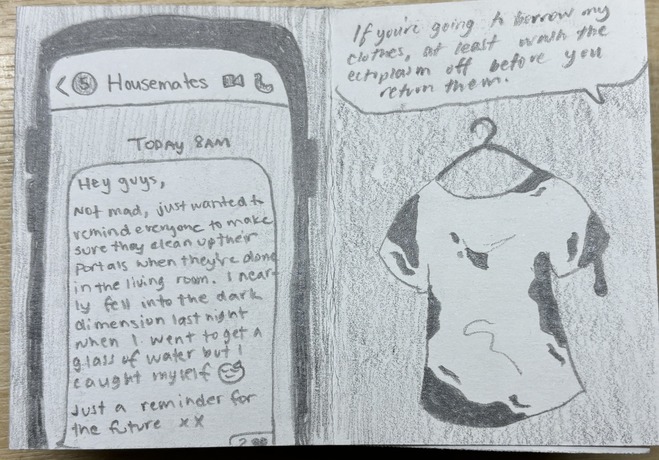 5 Housemates
TODAY 8AM
Hey guys,
Not mad, just wanted to
remind everyone to make
sure they clean up their
portals when they're done
in the living room. I near-
ly fell into the dark
dimension last night
when I went to get a
glass of water but I
caught myself
Just a reminder for
the future xx
If you're going to borrow my
clothes, at least wash the
ectoplasm off before you
return them.